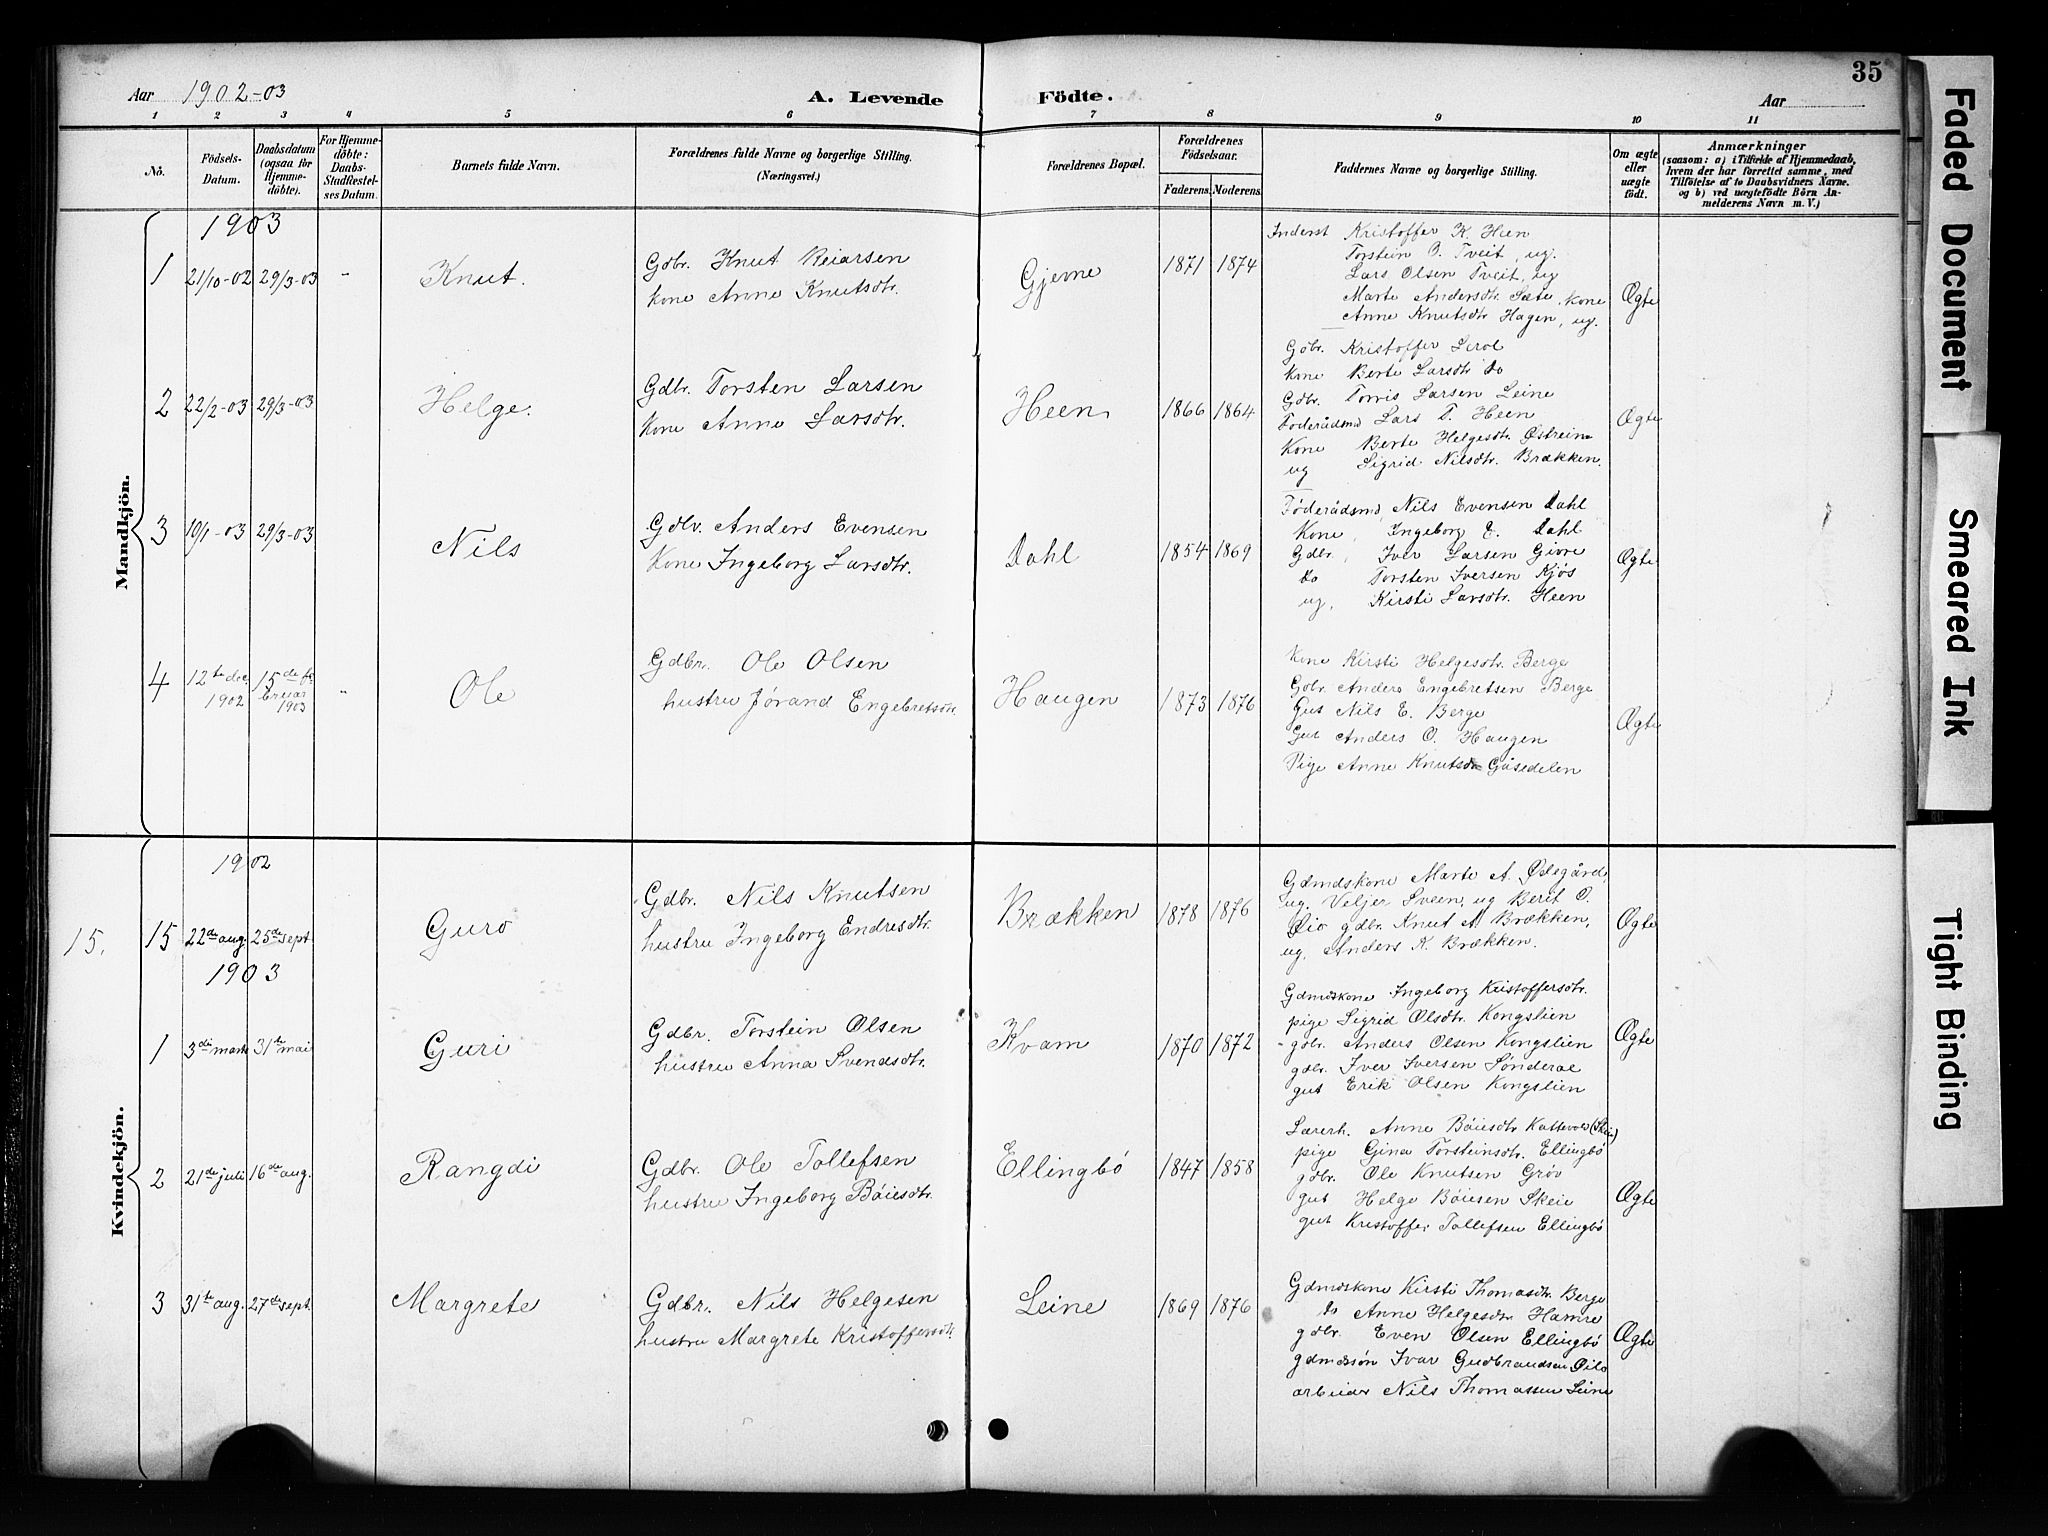 35
Aar 1902-03 A. Levende Födte. Aar
1 2 3 4 5 6 7 8 9 10 11
No. Födsels-Datum. Daabsdatum (ogsaa for Hjemmedöbte). For Hjemmedöbte: Daabs-Stadfæstelses Datum. Barnets fulde Navn. Forældrenes fulde Navne og borgerlige Stilling. (Næringsvei.) Forældrenes Bopæl. Forældrenes Födselsaar. Faderens. Moderens. Faddernes Navne og borgerlige Stilling. Om ægte eller uægte födt. Anmærkninger
(saasom: a) i Tilfælde af Hjemmedaab,
hvem der har forrettet samme, med
Tilföielse af to Daabsvidners Navne,
og b) ved uægtefödte Börn An-
melderens Navn m. V.)
Mandkjön.
1903
1 21/10-02 29/3-03 - Knut. Gdbr. Knut Reiarsen
kone Anne Knutsdtr. Gjevne 1871 1874
Inderst Kristoffer K. Heen
Torstein O. Tveit, ug.
Lars Olsen Tveit, ug
Marte Andersdtr. Sæte, kone
Anne Knutsdtr Hagen, ug.
Ægte
2 22/2-03 29/3-03 Helge. Gdbr. Torsten Larsen
Kone Anne Larsdtr. Heen 1866 1864
Gdbr. Kristoffer Lerol
Kone Berte Larsdtr do
Gdbr. Torris Larsen Leine
Føderådsmd Lars T. Heen
Kone Berte Helgesdtr. Østrein
ug Sigrid Nilsdtr. Brækken.
Ægte
3 10/1-03 29/3-03 Nils Gdbr. Anders Evensen
Kone Ingeborg Larsdtr. Dahl 1854 1869
Føderådsmd, Nils Evensen Dahl
Kone, Ingeborg E. Dahl
Gdbr, Iver Larsen Giore
do Torsten Iversen Kjøs
ug, Kirsti Larsdtr. Heen
Ægte
4 12te dec. 1902 15de februar 1903 " Ole Gdbr. Ole Olsen
hustru Jørand Engebretsdtr. Haugen 1873 1876
Kone Kirsti Helgesdtr. Berge
Gdbr. Anders Engebretsen Berge
Gut Nils E. Berge
Gut Anders O. Haugen
Pige Anne Knutsdtr Gåsedelen
Ægte
Kvindekjön.
1902
15. 15 22de aug. 25de sept. Guro Gdbr. Nils Knutsen
hustru Ingeborg Endresdtr. Brækken 1878 1876
Gdmdskone Marte A. Ødegård,
ug. Veljer Sveen, ug Berit O.
Øio gdbr. Knut A. Brækken,
ug. Anders K. Brækken.
Ægte
1903
1 3die marts 31te mai Guri Gdbr. Torstein Olsen
hustru Anna Svendsdtr. Kvam 1870 1872
Gdmdskone Ingeborg Kristoffersdtr.
pige Sigrid Olsdtr. Kongslien
gdbr. Anders Olsen Kongslien
gdbr. Iver Iversen Sønderal
gut Erik Olsen Kongslien
Ægte
2 21de juli 16de aug. Rangdi Gdbr. Ole Tollefsen
hustru Ingeborg Bøiesdtr. Ellingbö 1847 1858
Lærerh. Anne Bøiesdtr Kattevold (Skeie)
pige Gina Torsteinsdtr. Ellingbö
gdbr. Ole Knutsen Grøv
gut Helge Böiesen Skeie
gut Kristoffer Tollefsen Ellingbö
Ægte
3 31te aug. 27de sept. Margrete Gdbr. Nils Helgesen
hustru Margrete Kristoffersdtr. Leine 1869 1876
Gdmdskone Kirsti Thomasdtr. Berge
do Anne Helgesdtr Hamre
gdbr. Even Olsen Ellingbö
gdmdssøn Ivar Gudbrandsen Øilo
arbeider Nils Thomassen Leine
Ægte
Faded Document
Smeared Ink
Tight Binding